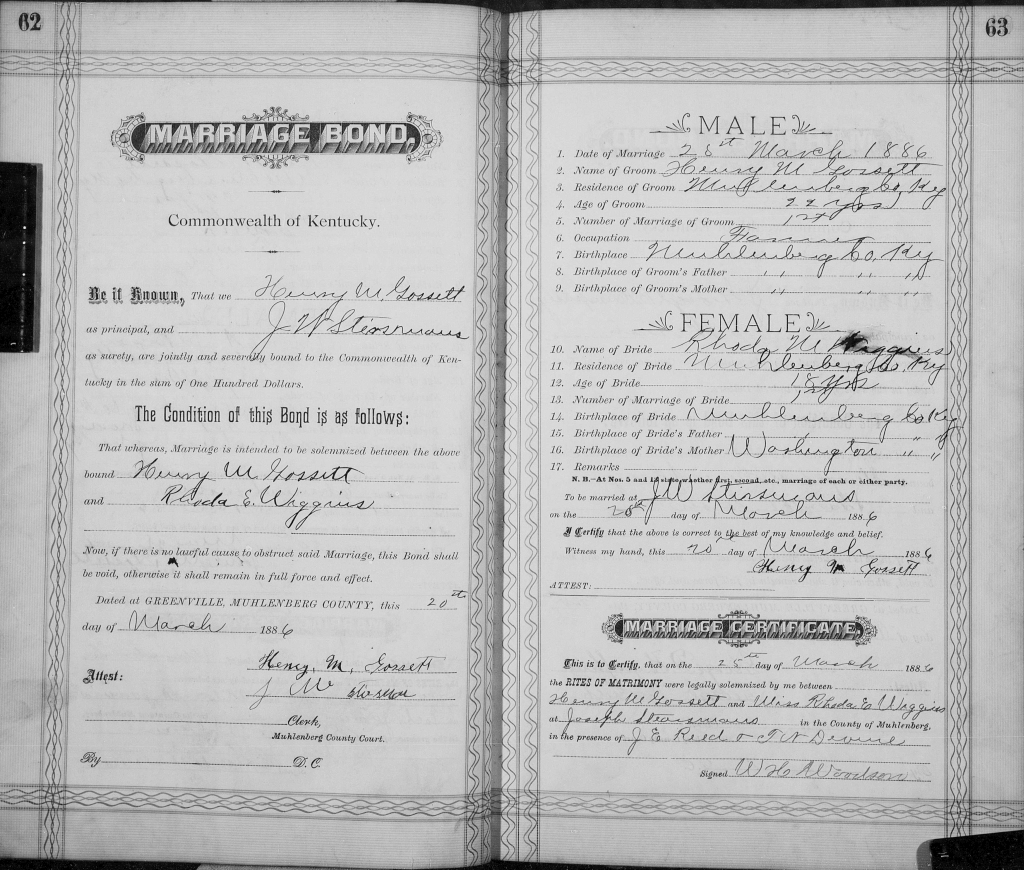 62
MARRIAGE BOND,
Commonwealth of Kentucky.
Be it Known, That we Henry M Gossett
as principal, and J W
as surety, are jointly and severally bound to the Commonwealth of Ken-
tucky in the sum of One Hundred Dollars.
The Condition of this Bond is as follows:
That whereas, Marriage is intended to be solemnized between the above
bound Henry M Gossett
and Rhoda E. Wiggins
Now, if there is no lawful cause to obstruct said Marriage, this Bond shall
be void, otherwise it shall remain in full force and effect.
Dated at GREENVILLE, MUHLENBERG COUNTY, this 20th
day of March 1886
Attest:
Henry, M, Gossett
J W
Clerk,
Muhlenberg County Court.
By D. C.
63
MALE
1. Date of Marriage 28th March 1886
2. Name of Groom Henry M Gossett
3. Residence of Groom Muhlenberg Co, Ky
4. Age of Groom 22 yrs
5. Number of Marriage of Groom 1st
6. Occupation Farmer
7. Birthplace Muhlenberg Co, Ky
8. Birthplace of Groom's Father " " "
9. Birthplace of Groom's Mother " " "
FEMALE
10. Name of Bride Rhoda M Wiggins
11. Residence of Bride Muhlenberg Co. Ky
12. Age of Bride 18 yrs
13. Number of Marriage of Bride 1st
14. Birthplace of Bride Muhlenberg Co Ky
15. Birthplace of Bride's Father " "
16. Birthplace of Bride's Mother Washington " "
17. Remarks
N. B.—At Nos. 5 and 13 state whether first, second, etc., marriage of each or either party.
To be married at J W
on the 28th day of March 1886
I Certify that the above is correct to the best of my knowledge and belief.
Witness my hand, this 20th day of March 1886
Henry M Gossett
ATTEST:
MARRIAGE CERTIFICATE,
This is to Certify, that on the 28th day of March 1886
the RITES OF MATRIMONY were legally solemnized by me between
Henry M Gossett and Miss Rhoda E Wiggins
at Joseph in the County of Muhlenberg,
in the presence of J E Reed & T N Devine
Signed W H Woodson